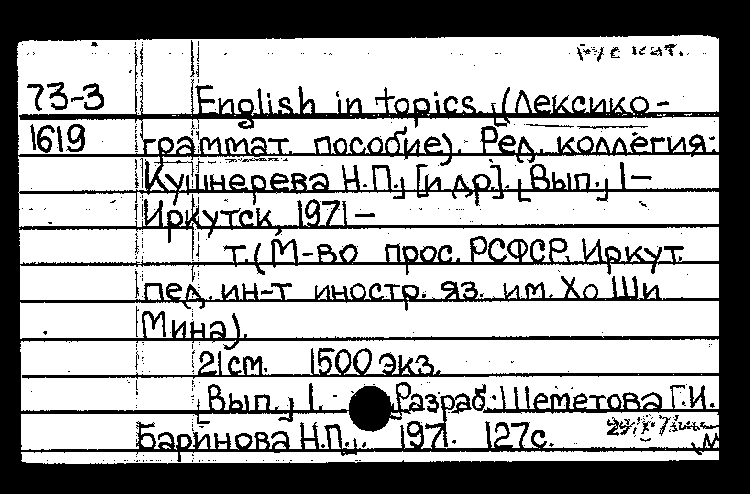 рус кат.
73-3 English in topics. (Лексико-
1619 граммат. пособие). Ред. коллегия:
Кушнерева Н.П.] [и др.]. [Вып.] 1-
Иркутск, 1971-
т. (М-во прос. РСФСР. Иркут.
пед. ин-т иностр. яз. им. Хо Ши
Мина).
21см. 1500 экз.
[Вып.] 1. [Разраб.: Шеметова Г.И.
Баринова Н.П.]. 1971. 127с.